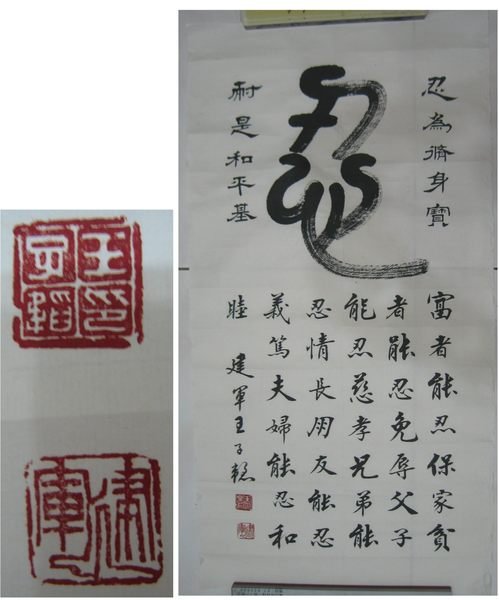 忍為濟身寶
忍
耐是和平基
富者能忍保家貧
者能忍免辱父子
能忍慈孝兄弟能
忍情長朋友能忍
義篤夫婦能忍和
睦
建軍王子
王印
建軍